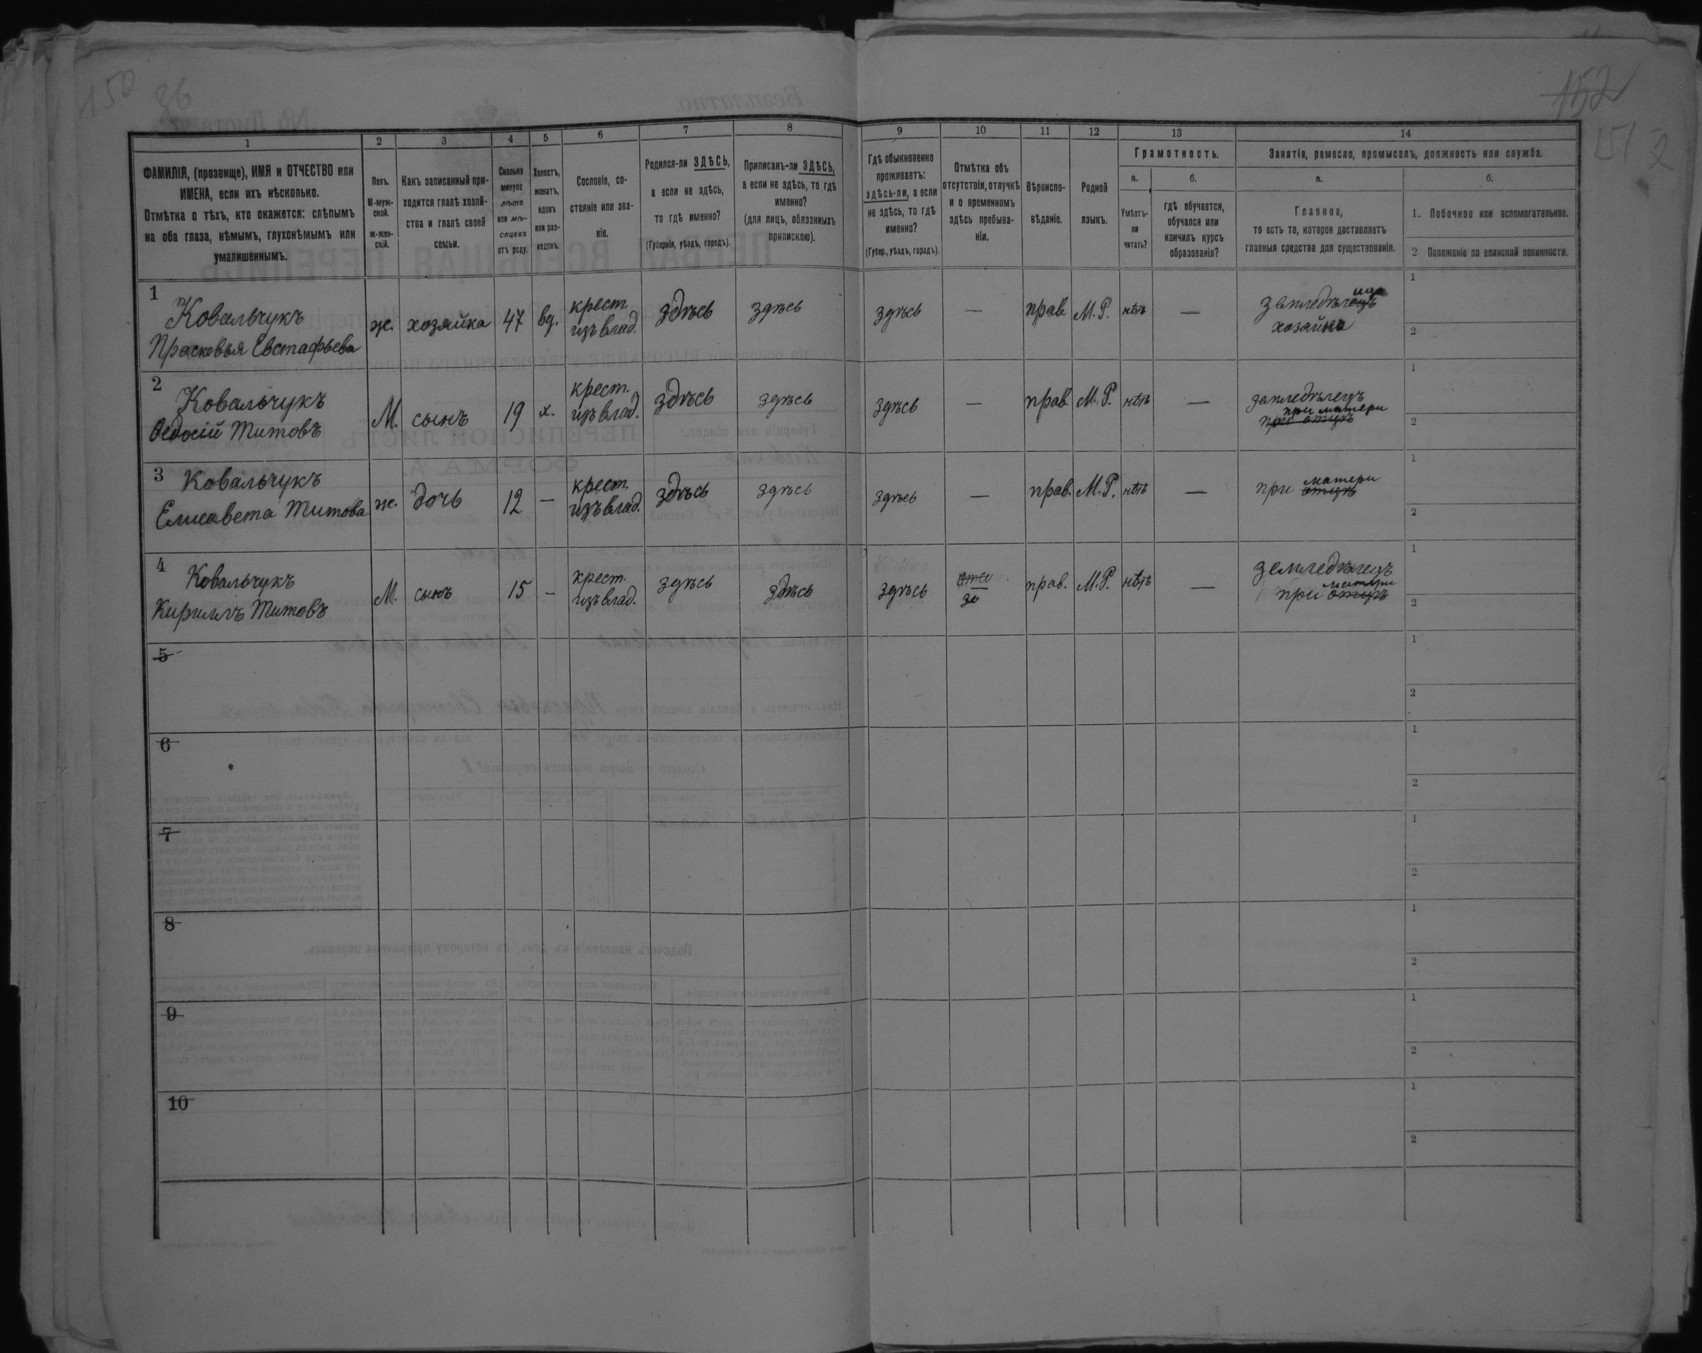 150 36
152
151
1
2
3
4
5
6
7
8
9
10
11
12
13
14
ФАМИЛІЯ, (прозвище), ИМЯ и ОТЧЕСТВО или
ИМЕНА, если ихъ нѣсколько.
Отмѣтка о тѣхъ, кто окажется: слѣпымъ
на оба глаза, нѣмымъ, глухонѣмымъ или
умалишеннымъ.
Полъ.
М-муж-
ской.
Ж-жен-
скій.
Какъ записанный при-
ходится главѣ хозяй-
ства и главѣ своей
семьи.
Сколько
минуло
лѣтъ
или мѣ-
сяцевъ
отъ роду.
Холостъ,
женатъ,
вдовъ
или раз-
веденъ.
Сословіе, со-
стояніе или зва-
ніе.
Родился-ли ЗДѢСЬ,
а если не здѣсь,
то гдѣ именно?
(Губернія, уѣздъ, городъ).
Приписанъ-ли ЗДѢСЬ,
а если не здѣсь, то гдѣ
именно?
(для лицъ, обязанныхъ
припискою).
Гдѣ обыкновенно
проживаетъ:
здѣсь-ли, а если
не здѣсь, то гдѣ
именно?
(Губер., уѣздъ, городъ).
Отмѣтка объ
отсутствіи, отлучкѣ
и о временномъ
здѣсь пребыва-
ніи.
Вѣроиспо-
вѣданіе.
Родной
языкъ.
Грамотность.
а.
б.
Умѣетъ-
ли
читать?
гдѣ обучается,
обучался или
кончилъ курсъ
образованія?
Занятіе, ремесло, промыселъ, должность или служба.
а.
б.
Главное,
то есть то, которое доставляетъ
главныя средства для существованія.
1. Побочное или вспомогательное.
2 Положеніе по воинской повинности.
1
Ковальчукъ
Прасковья Евстафьева
ж. хозяйка 47 вд. крест. изъ влад. здѣсь здѣсь здѣсь — прав. М.Р. нѣтъ —
хозяйка
1
2
2
Ковальчукъ
Ѳедосій Титовъ
М. сынъ 19 х. крест. изъ влад. здѣсь здѣсь здѣсь — прав. М.Р. нѣтъ —
при матери
при отцѣ
1
2
3
Ковальчукъ
Елисавета Титова
ж. дочь 12 — крест. изъ влад. здѣсь здѣсь здѣсь — прав. М.Р. нѣтъ —
матери
при отцѣ
1
2
4
Ковальчукъ
Кириллъ Титовъ
М. сынъ 15 — крест. изъ влад. здѣсь здѣсь здѣсь прав. М.Р. нѣтъ —
земледѣлецъ
матери
при отцѣ
1
2
5
1
2
6
1
2
7
1
2
8
1
2
9
1
2
10
1
2